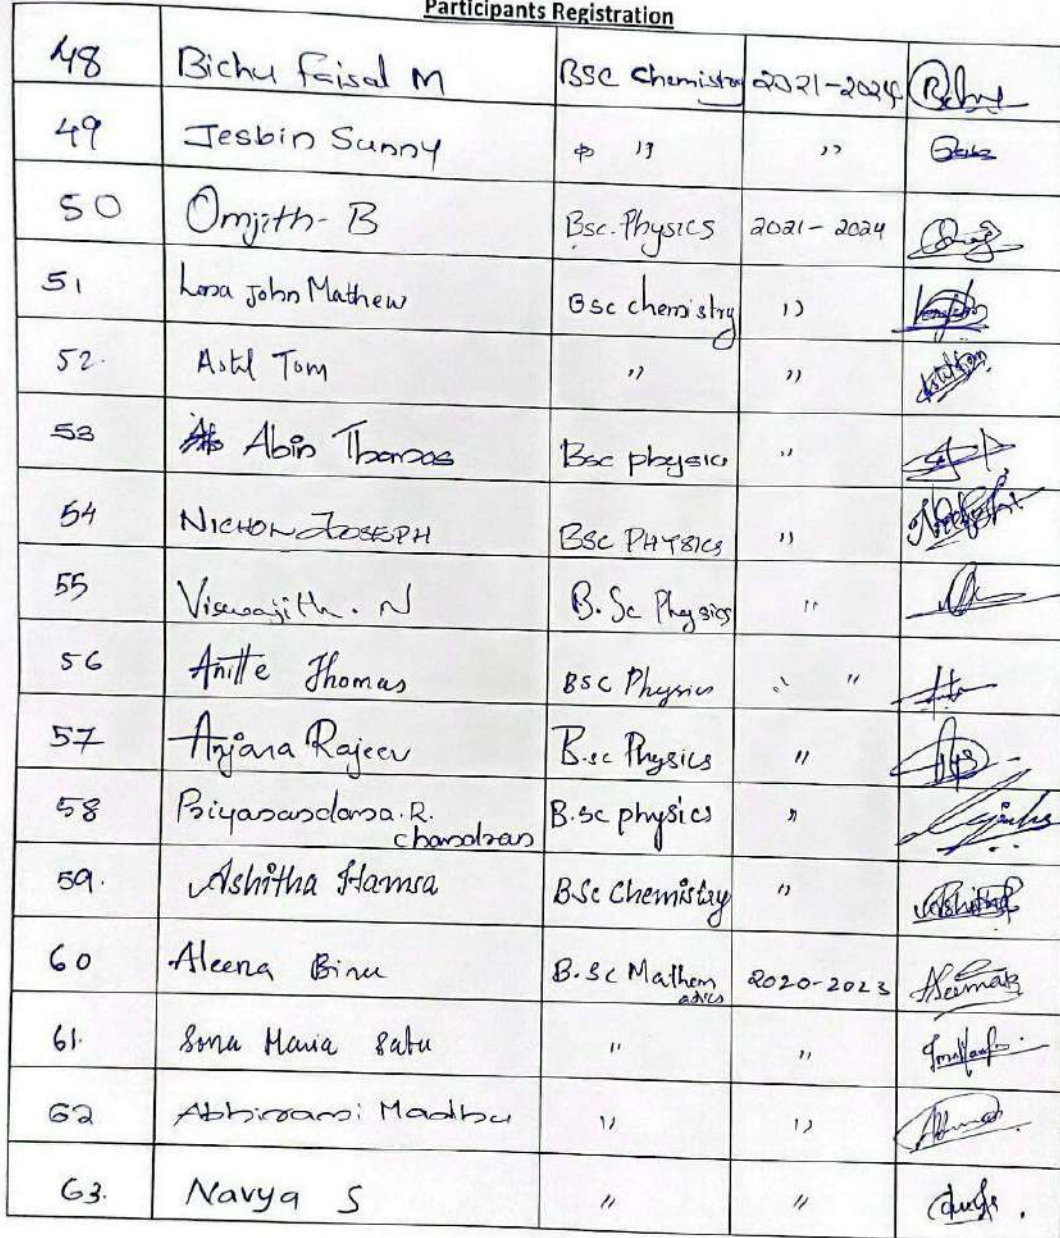 Participants Registration
48 Bichu Faisal M BSC Chemistry 2021-2024
49 Jesbin Sunny " "
50 Omjith- B Bsc. Physics 2021 - 2024
51 John Mathew Bsc chemistry "
52. Astil Tom " "
53 Abin Thomas Bsc physics "
54 NICHON JOSEPH BSC PHYSICS "
55 Viswajith. N B.Sc Physics "
56 Anitte Thomas BSC Physics "
57 Anjana Rajeev B.sc Physics "
58 Priyanandana. R. B.sc physics "
chandran
59. Ashitha Hamsa BSc Chemistry "
60 Aleena Binu B.Sc Mathem 2020-2023
atics
61. Sona Maria Sabu " "
62 Abhirami Madhu " "
63. Navya S " "